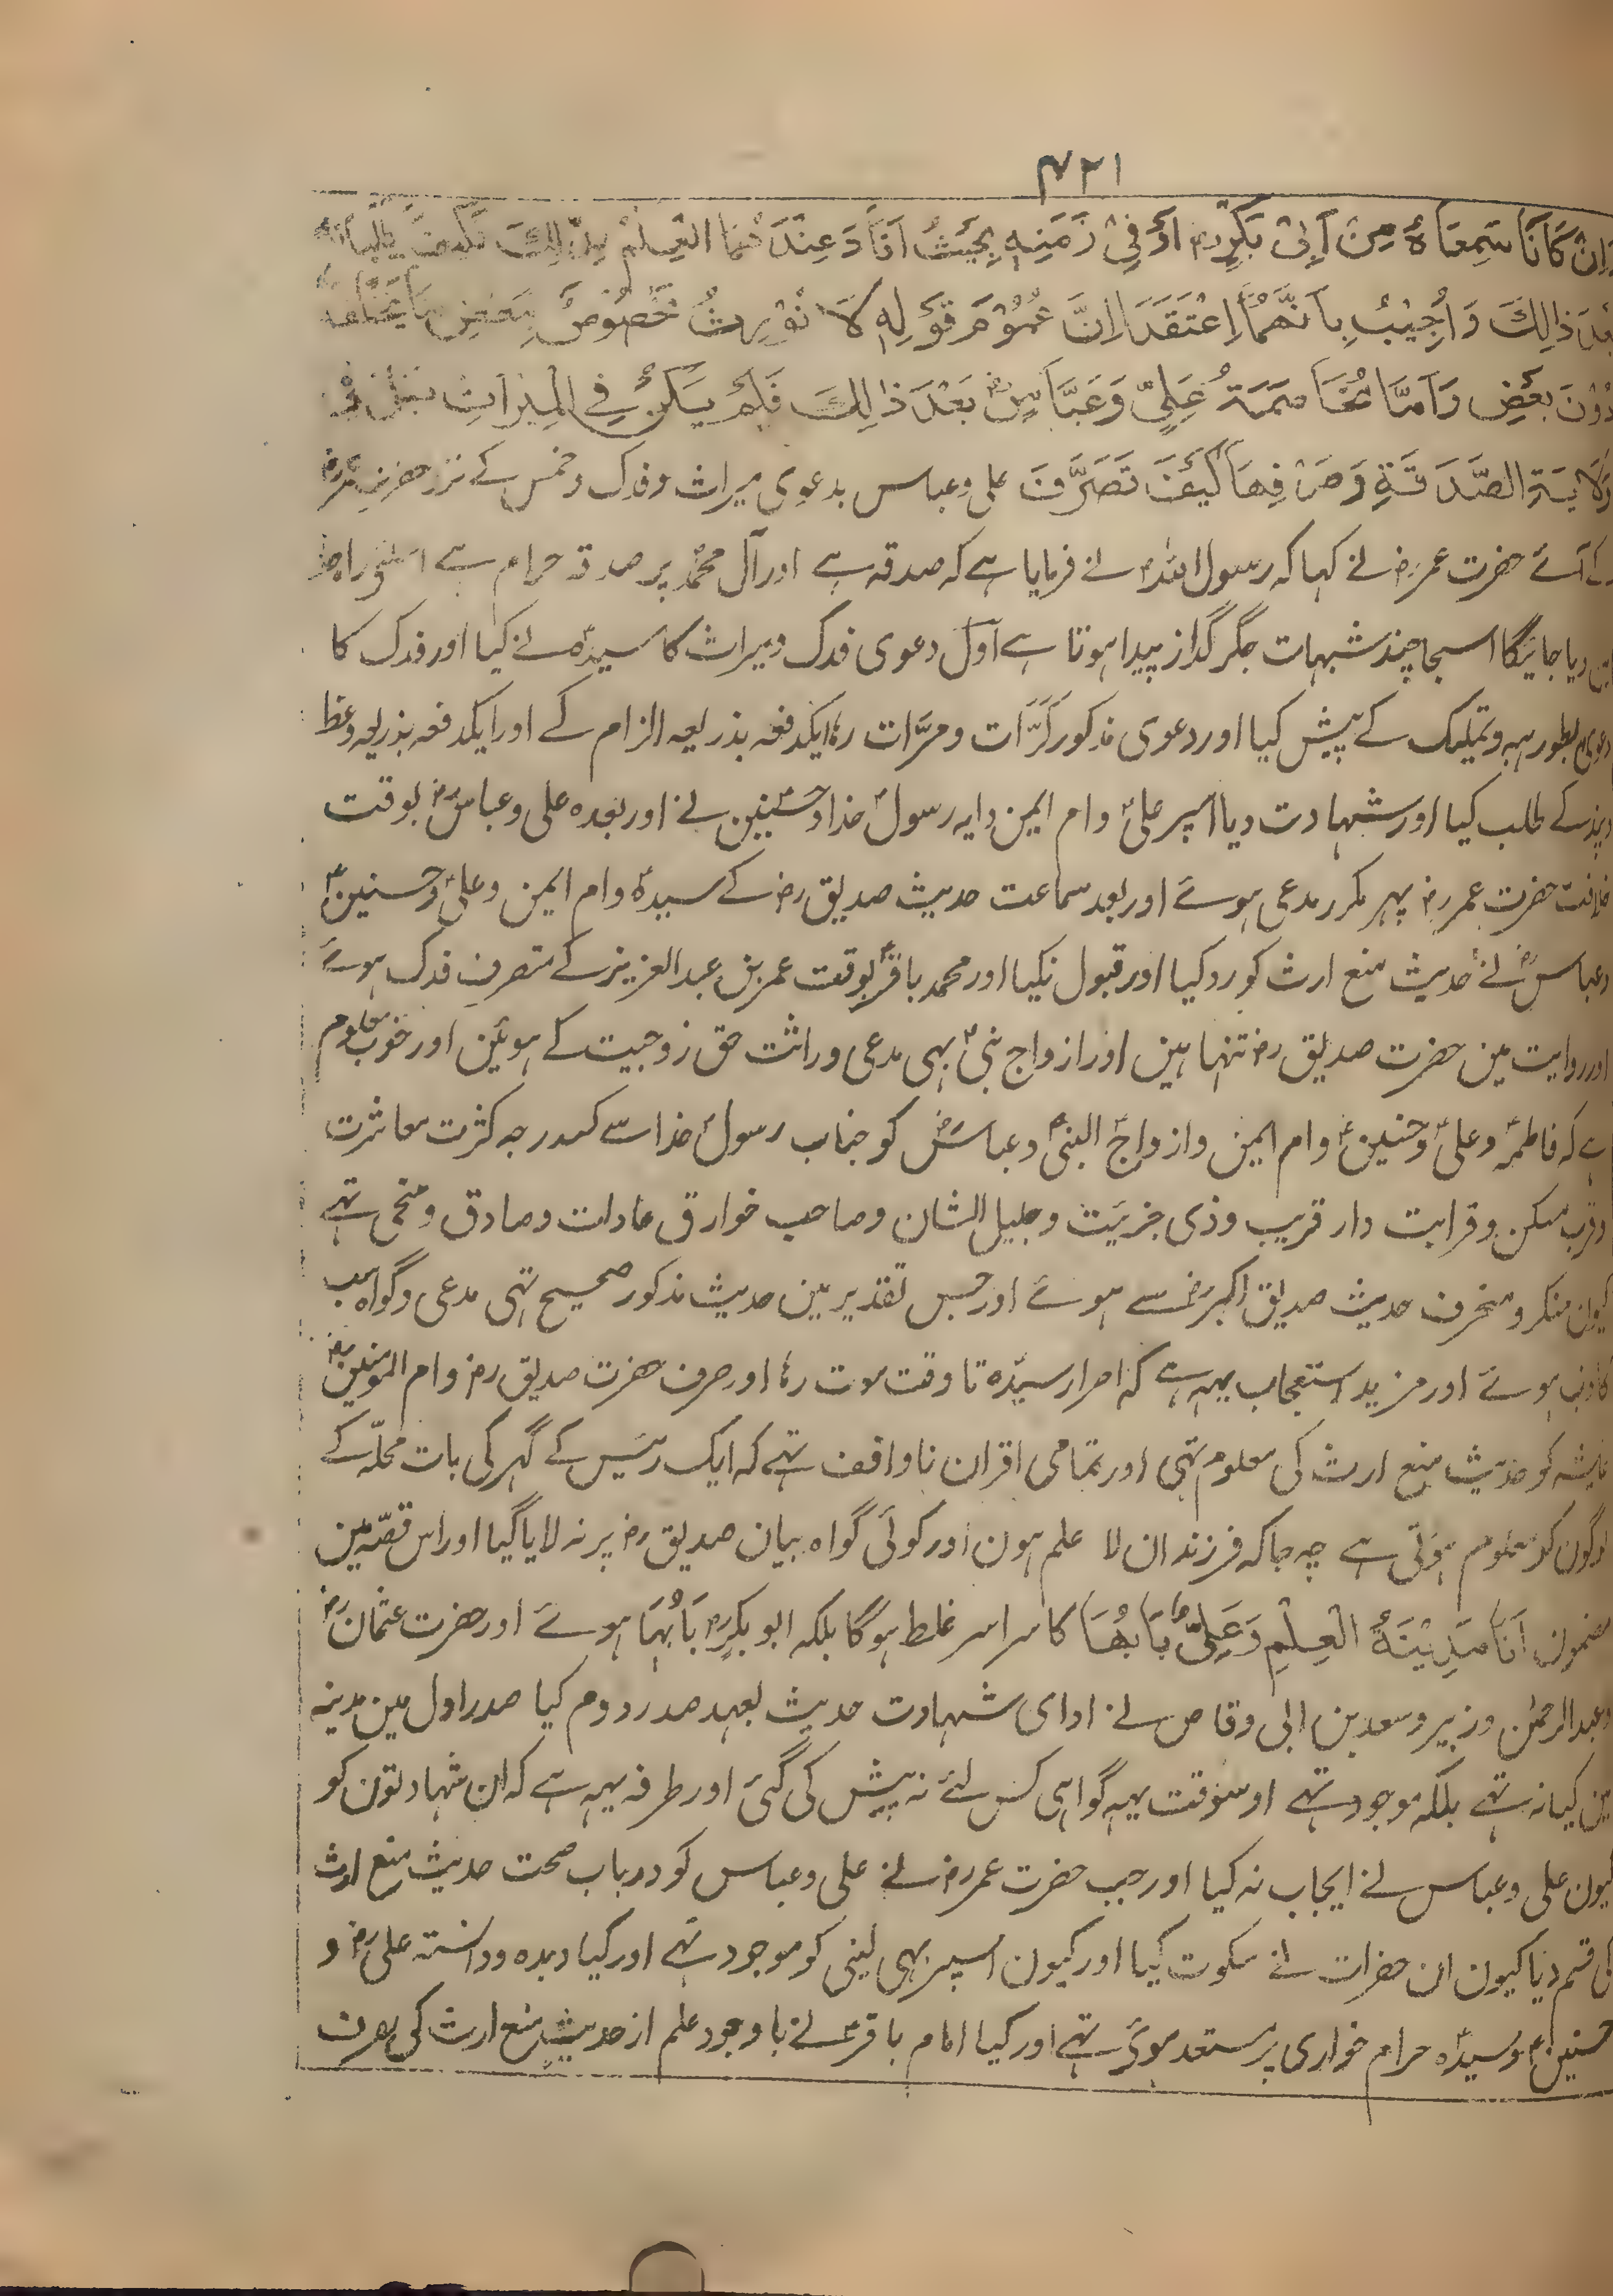 ۴۲۱
وَاِنْ كَانَا سَمِعَاهُ مِنْ اَبِیْ بَكْرٍ رض اَوْ فِیْ زَمَنِهٖ بِحَيْثُ اَفَادَ عِنْدَهُمَا الْعِلْمُ بِذٰلِكَ فَكَيْفَ يَطْلُبَانِهٖ
بَعْدَ ذَالِكَ وَاُجِيْبُ بِاَنَّهُمَا اِعْتَقَدَا اِنَّ عُمُوْمَ قَوْلِهٖ لَا نُوْرِثُ مَخْصُوْصٌ بِبَعْضِ مَا يُخَلِّفُهٗ
دُوْنَ بَعْضٍ وَاَمَّا مُخَاصَمَةُ عَلِیٍّ وَعَبَّاسٍؓ بَعْدَ ذَالِكَ فَلَمْ يَكُنْ فِی الْمِيْرَاثِ بَلْ فِیْ
وَلَايَةِ الصَّدَقَةِ وَصَرْفِهَا كَيْفَ تَصَرَّفَ علی وعباس بدعوی میراث وفدک وخمس کے نزد حضرت عمر رض
کے آئے حضرت عمر رض نے کہا کہ رسول اللہؐ نے فرمایا ہے کہ صدقہ ہے اور آل محمدؐ پر صدقہ حرام ہے
نہین دیا جائیگا اسجا چند شبہات جگر گداز پیدا ہوتا ہے اول دعوی فدک ومیراث کا سیدہؑ نے کیا اور فدک کا
دعوی بطور ہبہ وتملیک کے پیش کیا اور دعوی مذکور کَرَّات ومرَّات رہا ایکدفعہ بذریعہ الزام کے اور ایکدفعہ بذریعہ وعظ
وپند کے طلب کیا اور شہادت دیا اسپر علیؑ وام ایمن دایہ رسولؐ خدا وحسنینؑ نے اور بعدہ علی وعباسؓ بوقت
خلافت حضرت عمر رض پہر مکرر مدعی ہوے اور بعد سماعت حدیث صدیق رض کے سیدہؑ وام ایمن وعلیؑ وحسنینؑ
وعباسؓ نے حدیث منع ارث کو رد کیا اور قبول نکیا اور محمد باقرؑ بوقت عمر بن عبد العزیز کے متصرف فدک ہوے
اور روایت مین حضرت صدیق رض تنہا ہین اور ازواج نبیؐ بہی مدعی وراثت حق زوجیت کے ہوئین اور خوب معلوم
ہے کہ فاطمہؑ وعلیؑ وحسنینؑ وام ایمن وازواج النبیؐ وعباسؓ کو جناب رسولؐ خدا سے کسدرجہ کثرت معاشرت
وقرب مسکن وقرابت دار قریب وذی جزئیت وجلیل الشان وصاحب خوارق عادات وصادق و تہے
کیون منکر ومنحرف حدیث صدیق اکبرؓ سے ہوے اور جس تقدیر مین حدیث مذکور صحیح تہی مدعی وگواہ سب
کاذب ہوے اور مزید استعجاب یہہ ہے کہ اصرار سیدہؑ تا وقت موت رہا اور صرف حضرت صدیق رض وام المومنین
عایشہ کو حدیث منع ارث کی معلوم تہی اور تمامی اقران ناواقف تہے کہ ایک رئیس کے گہر کی بات محلّہ کے
لوگون کو معلوم ہوتی ہے چہ جاکہ فرزندان لا علم ہون اور کوئی گواہ بیان صدیق رض پر نہ لایا گیا اور اس قصّہ مین
مضمون اَنَا مَدِيْنَةُ الْعِلْمِ وَعَلِیٌّ بَابُهَا کا سراسر غلط ہوگا بلکہ ابو بکر رض بَابُہَا ہوے اور حضرت عثمان رض
وعبد الرحمٰن وزبیر وسعد بن ابی وقاص نے ادای شہادت حدیث بعہد صدر دوم کیا صدر اول مین مدینہ
مین کیا نہ تہے بلکہ موجود تہے اوسوقت یہہ گواہی کس لئے نہ پیش کی گئی اور طرفہ یہہ ہے کہ ان شہادتون کو
کیون علی وعباس نے ایجاب نہ کیا اور جب حضرت عمر رض نے علی وعباس کو درباب صحت حدیث منع ارث
کی قسم دیا کیون ان حضرات نے سکوت کیا اور کیون اسپر بہی لینی کو موجود تہے اور کیا دیدہ ودانستہ علی رض و
حسنینؑ وسیدہؑ حرام خواری پر مستعد ہوئے تہے اور کیا امام باقرؑ نے باوجود علم از حدیث منع ارث کی صرف